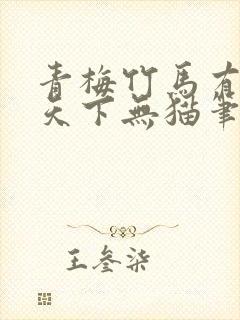 青梅竹馬有
天下無貓筆
王叁柒